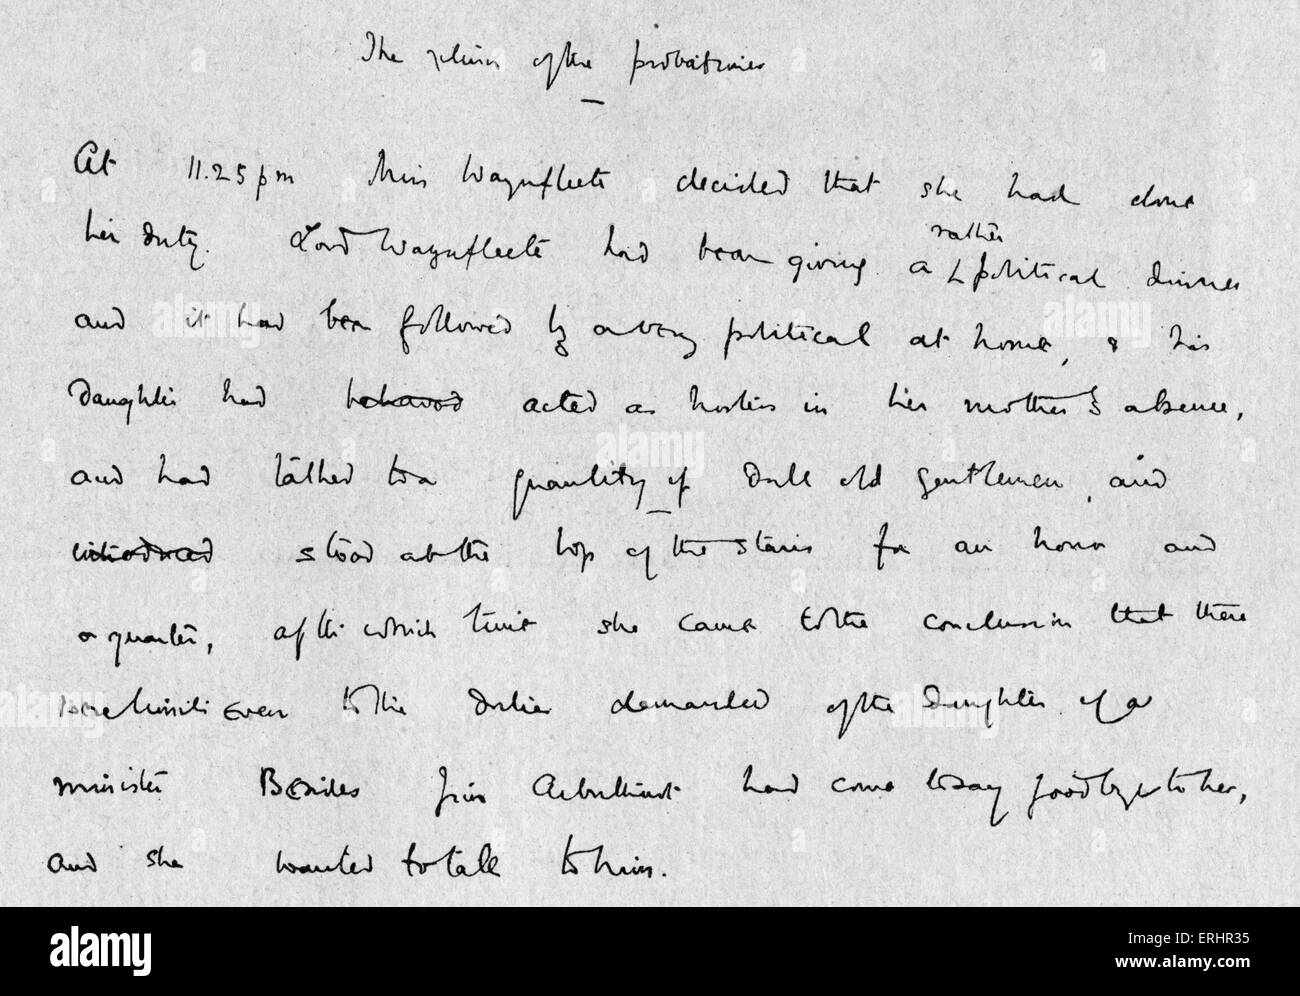 The of the probationer
At 11.25 pm Miss Waynflete decided that she had done
rather
her duty. Lord Waynflete had been giving a political dinner
and it had been followed by a very political at home, & his
daughter had behaved acted as hostess in her mother's absence,
and had talked to a quantity of dull old gentlemen, and
introduced stood at the top of the stairs for an hour and
a quarter, after which time she came to the conclusion that there
were limits even to the duties demanded of the daughter of a
minister Besides Jim Arbuthnot had come to say goodbye to her,
and she wanted to talk to him.
alamy
alamy stock photo
ERHR35
www.alamy.com